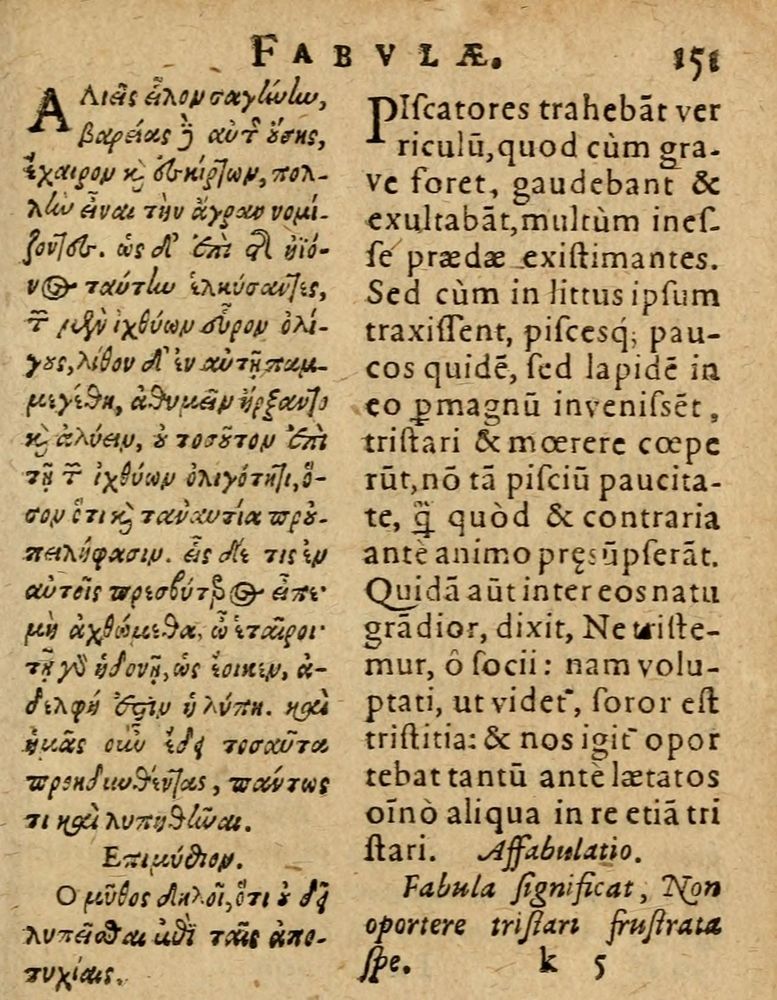 FABVLÆ. 151
ΑΛιεῖς εἷλκον σαγήνην,
βαρείας δὲ αὐτῆς οὔσης,
ἔχαιρον κὶ ἐσκίρτων, πολ-
λὴν εἶναι τὴν ἄγραν νομί-
ζοντες. ὡς δ' ἐπὶ τῆς ἠϊό-
νος ταύτην ἑλκύσαντες,
τῶν μὲν ἰχθύων εὗρον ὀλί-
γους, λίθον δ' ἐν αὐτῇ παμ-
μεγέθη, ἀθυμεῖν ἤρξαντο
κὶ ἀλύειν, οὐ τοσοῦτον ἐπὶ
τῇ τῶν ἰχθύων ὀλιγότητι, ὅ-
σον ὅτι κὶ τἀναντία προὐ-
πειλήφασιν. εἷς δέ τις ἐν
αὐτοῖς πρεσβύτερος εἶπε·
μὴ ἀχθώμεθα, ὦ ἑταῖροι·
τῇ γὰρ ἡδονῇ, ὡς ἔοικεν, ἀ-
δελφή ἐστιν ἡ λύπη. καὶ
ἡμᾶς οὖν ἔδει τοσαῦτα
προηδυνθέντας, πάντως
τι καὶ λυπηθῆναι.
Επιμύθιον.
Ο μῦθος δηλοῖ, ὅτι οὐ δεῖ
λυπεῖσθαι ἐπὶ ταῖς ἀπο-
τυχίαις.
PIſcatores trahebāt ver
riculū, quod cùm gra-
ve foret, gaudebant &
exultabāt, multùm ineſ-
ſe prædæ exiſtimantes.
Sed cùm in littus ipſum
traxiſſent, piſcesq́; pau-
cos quidē, ſed lapidē in
eo ꝑmagnū inveniſsēt,
triſtari & mœrere cœpe
rūt, nō tā piſciū paucita-
te, q̃ quòd & contraria
antè animo pręsūpſerāt.
Quidā aūt inter eos natu
grādior, dixit, Ne triſte-
mur, ô ſocii: nam volu-
ptati, ut videt᷑, ſoror eſt
triſtitia: & nos igit᷑ opor
tebat tantū antè lætatos
oīnò aliqua in re etiā tri
ſtari. Affabulatio.
Fabula ſignificat, Non
oportere triſtari fruſtrata
ſpe. k 5